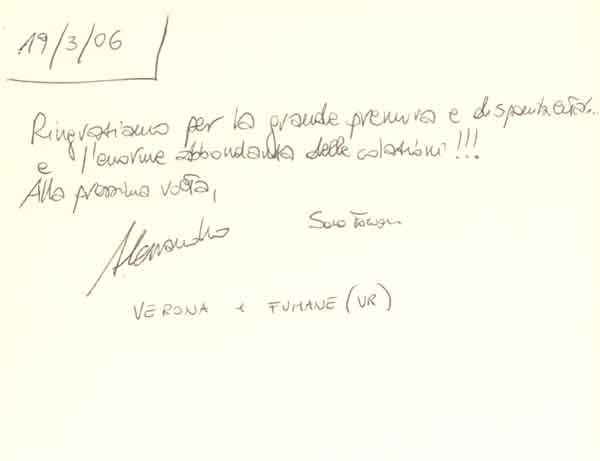 19/3/06
Ringraziamo per la grande premura e disponibilità...
e l'enorme abbondanza delle colazioni!!!
Alla prossima volta,
Alessandro
VERONA e FUMANE (VR)